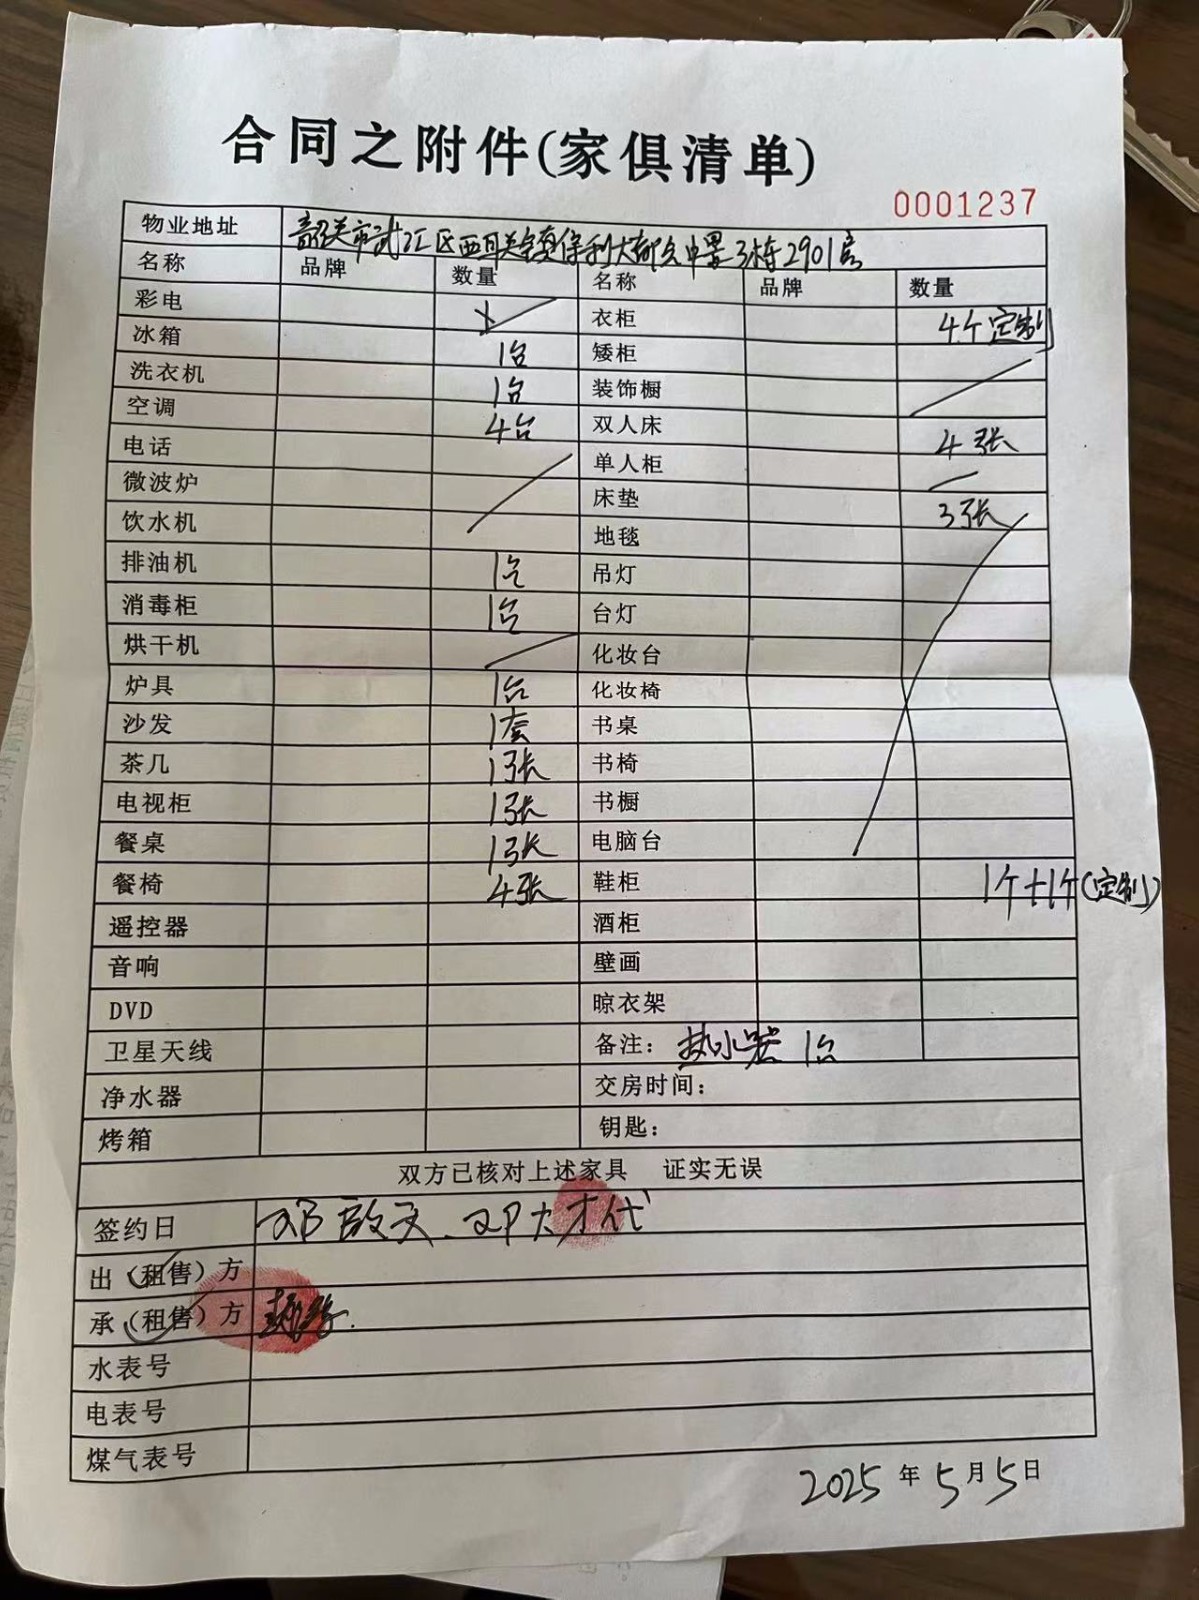 合同之附件(家俱清单)
0001237
物业地址 韶关市武江区西联镇保利大都会中景3栋2901房
名称 品牌 数量 名称 品牌 数量
彩电 衣柜 4个定制
冰箱 1台 矮柜
洗衣机 1台 装饰橱
空调 4台 双人床 4张
电话 单人柜
微波炉 床垫 3张
饮水机 地毯
排油机 1台 吊灯
消毒柜 1台 台灯
烘干机 化妆台
炉具 1台 化妆椅
沙发 1套 书桌
茶几 1张 书椅
电视柜 1张 书橱
餐桌 1张 电脑台
餐椅 4张 鞋柜 1个+1个(定制)
遥控器 酒柜
音响 壁画
DVD 晾衣架
卫星天线 备注: 热水器 1台
净水器 交房时间:
烤箱 钥匙:
双方已核对上述家具 证实无误
签约日 邓啟文、邓大才代
出(租售)方
承(租售)方
水表号
电表号
煤气表号
2025年5月5日